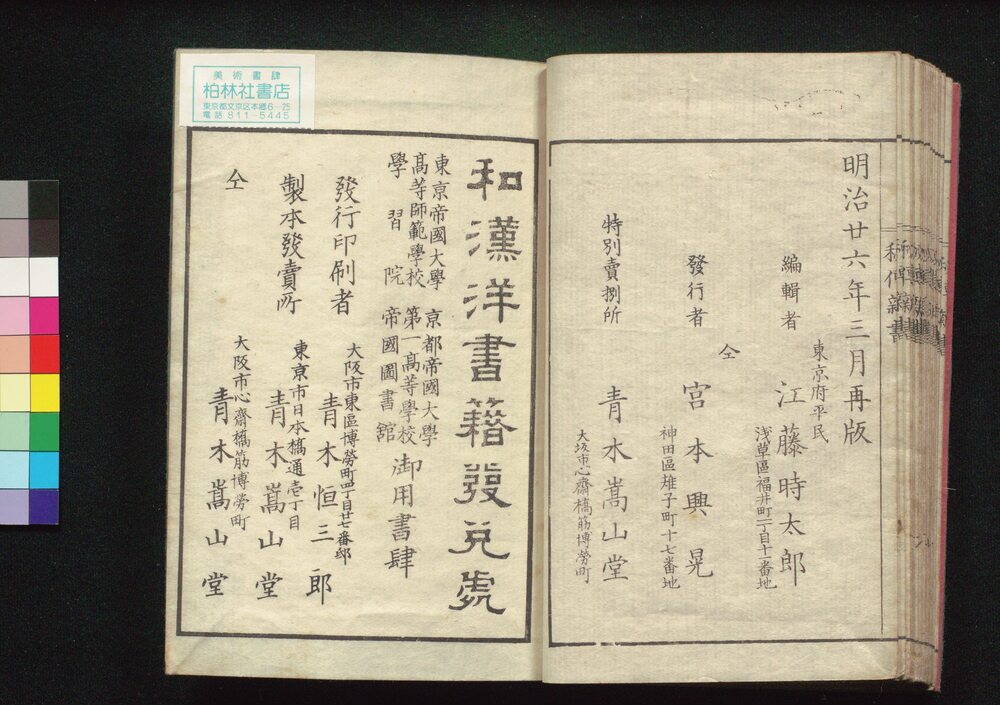 明治廿六年三月再版
編輯者
東京府平民
江藤時太郎
浅草區福井町一丁目十一番地
仝
發行者
宮本興晃
神田區雉子町十七番地
特別賣捌所
青木嵩山堂
大坂市心齋橋筋博勞町
美術書肆
柏林社書店
東京都文京区本郷6-25
電話811-5445
和漢洋書籍發兌處
東京帝國大學
高等師範學校
學習院
京都帝國大學
第一高等學校
帝國圖書舘
御用書肆
發行印刷者
大阪市東區博勞町四丁目廿七番邸
青木恒三郎
製本發賣所
東京市日本橋通壱丁目
青木嵩山堂
仝
大阪市心齋橋筋博勞町
青木嵩山堂